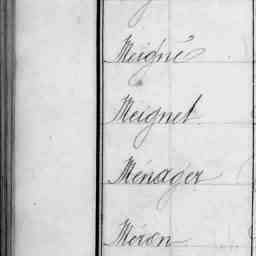 Meigné
Meignet
Ménager
Méron